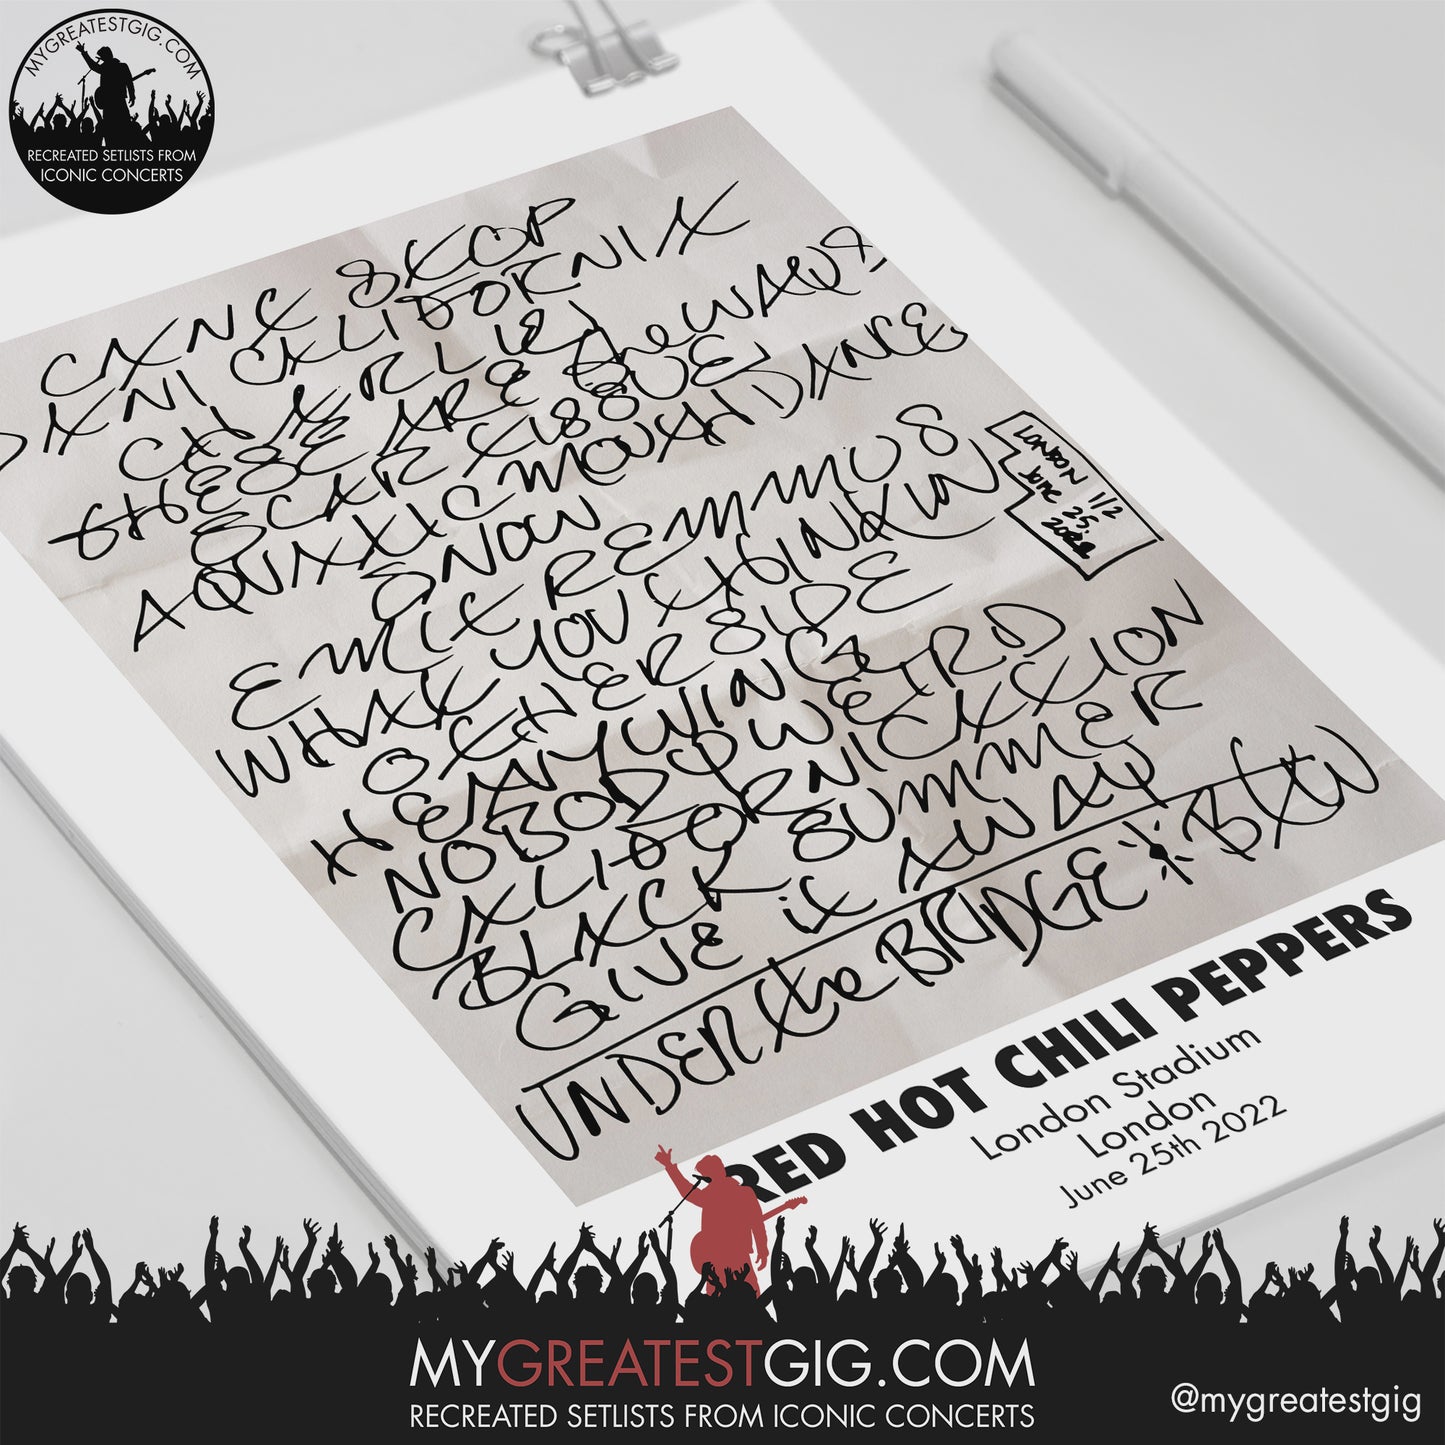 MYGREATESTGIG.COM
RECREATED SETLISTS FROM
ICONIC CONCERTS
CAN'T STOP
DANI CALIFORNIA
CHARLIE
THESE ARE the WAYS
SCAR TISSUE
AQUATIC MOUTH DANCE
SNOW
EMIT REMMUS
WHAT YOU THINKIN
OTHERSIDE
HEAVY WING
NOBODY WEIRD
CALIFORNICATION
BLACK SUMMER
GIVE it AWAY
UNDER the BRIDGE * BTW
LONDON 1/2
June
25
2022
RED HOT CHILI PEPPERS
London Stadium
London
June 25th 2022
MYGREATESTGIG.COM
RECREATED SETLISTS FROM ICONIC CONCERTS
@mygreatestgig